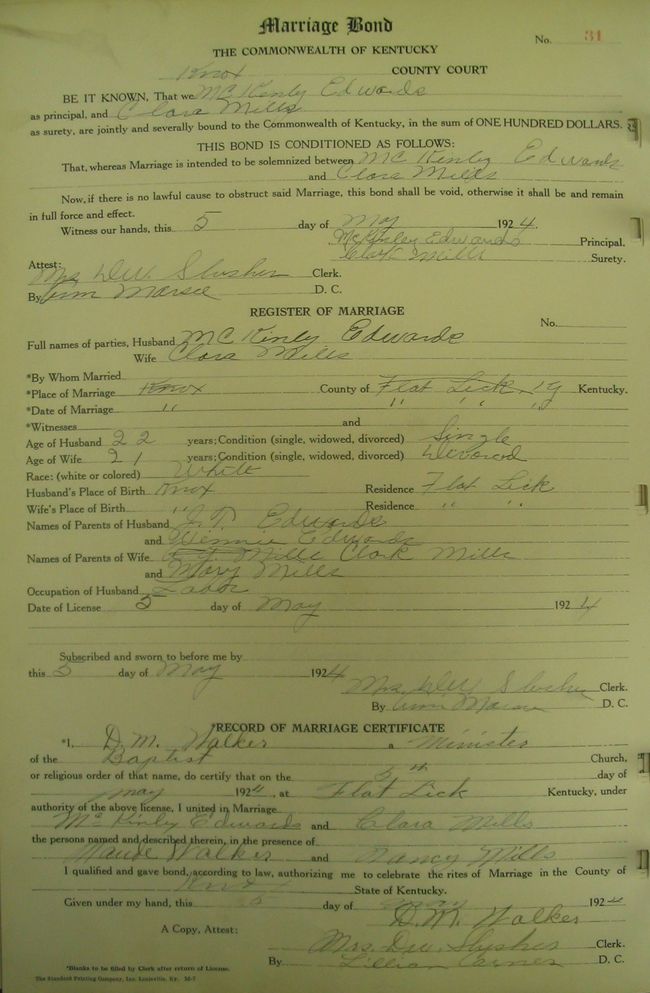 Marriage Bond
No. 31
THE COMMONWEALTH OF KENTUCKY
Knox COUNTY COURT
BE IT KNOWN, That we McKinly Edwards
as principal, and Clara Mills
as surety, are jointly and severally bound to the Commonwealth of Kentucky, in the sum of ONE HUNDRED DOLLARS.
THIS BOND IS CONDITIONED AS FOLLOWS:
That, whereas Marriage is intended to be solemnized between McKinly Edwards
and Clara Mills
Now, if there is no lawful cause to obstruct said Marriage, this bond shall be void, otherwise it shall be and remain
in full force and effect.
Witness our hands, this 5 day of May 1924.
McKinley Edwards Principal.
Clark Mills Surety.
Attest:
Mrs. D.W. Slusher Clerk.
By D. C.
REGISTER OF MARRIAGE
No.
Full names of parties, Husband McKinly Edwards
Wife Clara Mills
*By Whom Married
*Place of Marriage Knox County of Flat Lick, Ky Kentucky.
*Date of Marriage " " " "
*Witnesses and
Age of Husband 22 years; Condition (single, widowed, divorced) Single
Age of Wife 21 years; Condition (single, widowed, divorced) Divorced
Race: (white or colored) White
Husband's Place of Birth Knox Residence Flat Lick
Wife's Place of Birth " Residence " "
Names of Parents of Husband Edwards
and Winnie Edwards
Names of Parents of Wife Mills Clark Mills
and Mary Mills
Occupation of Husband Labor
Date of License 5 day of May 1924
Subscribed and sworn to before me by
this 5 day of May 1924
Mrs. D.W. Slusher Clerk.
By D. C.
*RECORD OF MARRIAGE CERTIFICATE
*I, D.M. Walker a Minister
of the Baptist Church,
or religious order of that name, do certify that on the 5th day of
May 1924, at Flat Lick Kentucky, under
authority of the above license, I united in Marriage
McKinly Edwards and Clara Mills
the persons named and described therein, in the presence of
Maude Walker and Nancy Mills
I qualified and gave bond, according to law, authorizing me to celebrate the rites of Marriage in the County of
Knox State of Kentucky.
Given under my hand, this 5 day of May 1924
D.M. Walker
A Copy, Attest:
Mrs. D.W. Slusher Clerk.
By Lillian Carnes D. C.
*Blanks to be filled by Clerk after return of License.
The Standard Printing Company, Inc. Louisville, Ky. 24-7